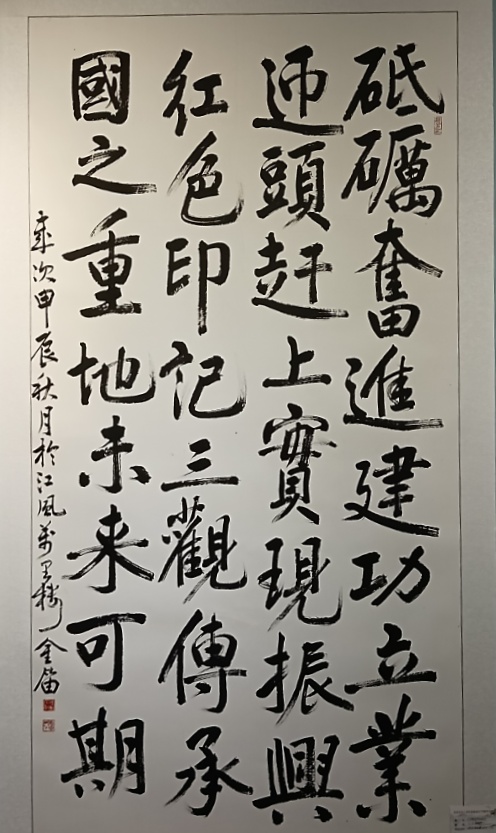 砥礪奮進建功立業
迎頭趕上實現振興
红色印记三觀傳承
國之重地未来可期
歲次申辰秋月於江風萬里楼金笛